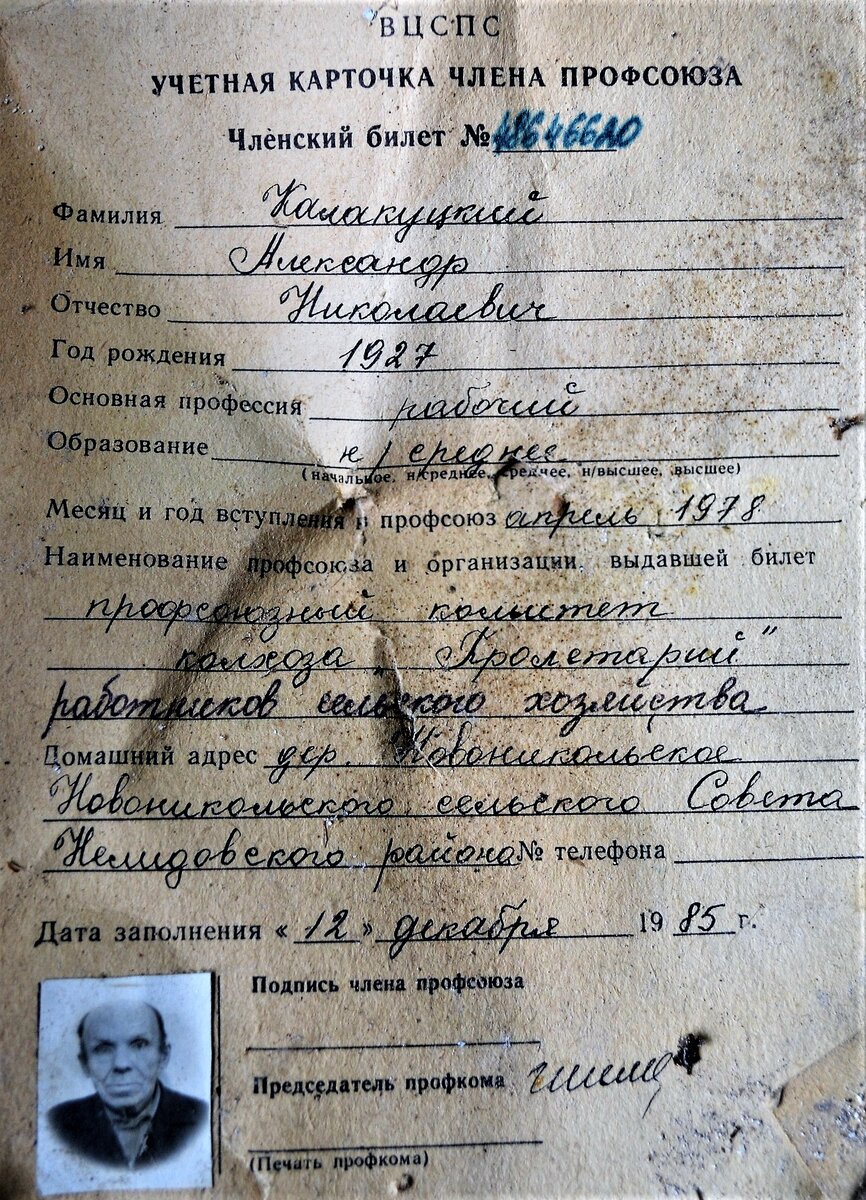 ВЦСПС
УЧЕТНАЯ КАРТОЧКА ЧЛЕНА ПРОФСОЮЗА
Членский билет № 48646610
Фамилия Калакуцкий
Имя Александр
Отчество Николаевич
Год рождения 1927
Основная профессия рабочий
Образование н/среднее
(начальное, н/среднее, среднее, н/высшее, высшее)
Месяц и год вступления в профсоюз апрель 1978
Наименование профсоюза и организации, выдавшей билет
профсоюзный комитет
колхоза „Пролетарий"
работников сельского хозяйства
Домашний адрес дер. Новоникольское
Новоникольского сельского Совета
Нелидовского района № телефона
Дата заполнения « 12 » декабря 19 85 г.
Подпись члена профсоюза
Председатель профкома
(Печать профкома)